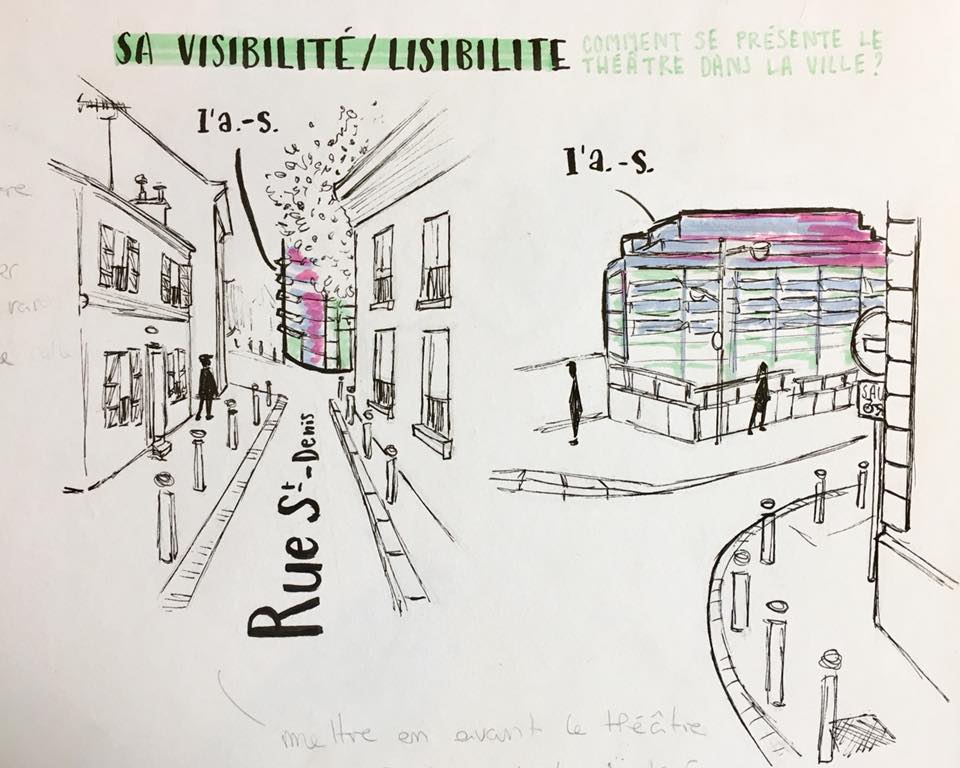 SA VISIBILITÉ/LISIBILITE
COMMENT SE PRÉSENTE LE
THÉÂTRE DANS LA VILLE?
l'a.-s.
l'a.-s.
Rue St-Denis
mettre en avant le théâtre